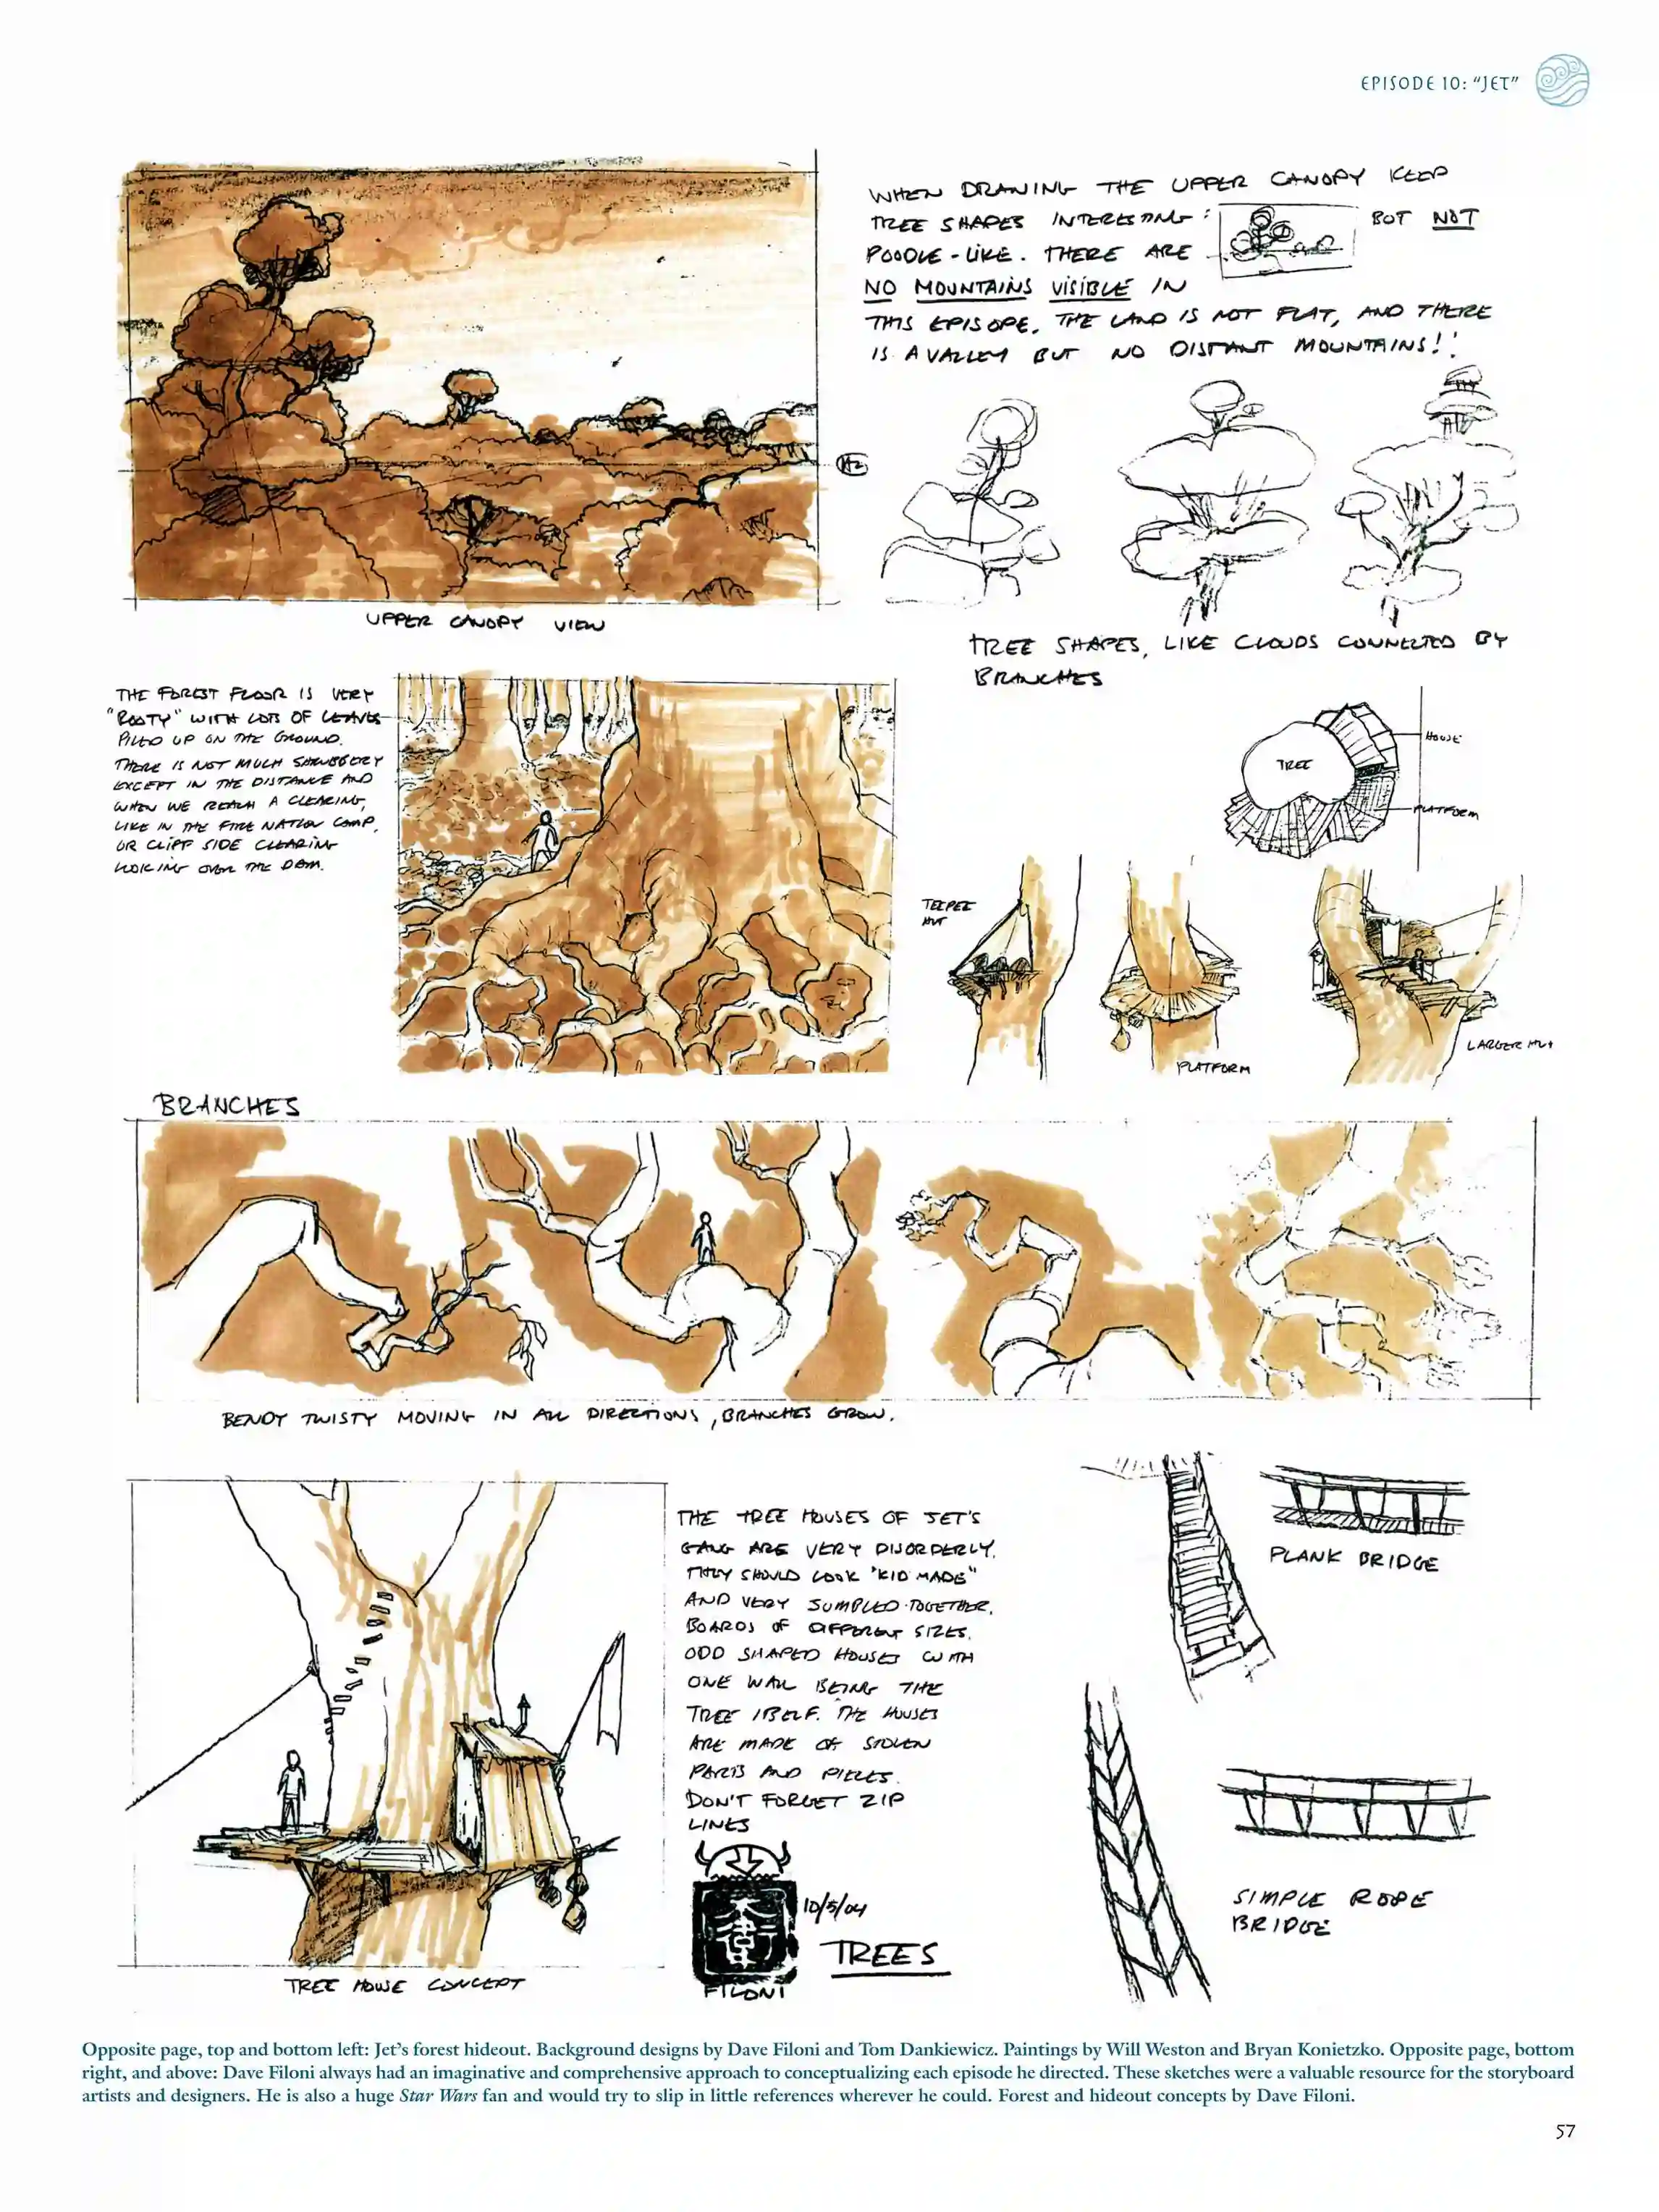 EPISODE 10: "JET"
WHEN DRAWING THE UPPER CANOPY KEEP
TREE SHAPES INTERESTING: BUT NOT
POODLE-LIKE. THERE ARE
NO MOUNTAINS VISIBLE IN
THIS EPISOPE. THE LAND IS NOT FLAT, AND THERE
IS A VALLEY BUT NO DISTANT MOUNTAINS!!
HZ
UPPER CANOPY VIEW
TREE SHAPES, LIKE CLOUDS CONNECTED BY
BRANCHES
THE FOREST FLOOR IS VERY
"ROOTY" WITH LOTS OF LEAVES
PILED UP ON THE GROUND.
THERE IS NOT MUCH SHRUBBERY
EXCEPT IN THE DISTANCE AND
WHEN WE REACH A CLEARING,
LIKE IN THE FIRE NATION CAMP,
OR CLIFF SIDE CLEARING
LOOKING OVER THE DAM.
HOUSE
TREE
PLATFORM
TEEPEE
HUT
PLATFORM
LARGER HUT
BRANCHES
BENDY TWISTY MOVING IN ALL DIRECTIONS, BRANCHES GROW.
THE TREE HOUSES OF JET'S
GANG ARE VERY DISORDERLY.
THEY SHOULD LOOK "KID MADE"
AND VERY SUMPLED TOGETHER.
BOARDS OF DIFFERENT SIZES.
ODD SHAPED HOUSES WITH
ONE WALL BEING THE
TREE ITSELF. THE HOUSES
ARE MADE OF STOLEN
PARTS AND PIECES.
DON'T FORGET ZIP
LINES
PLANK BRIDGE
SIMPLE ROPE
BRIDGE
10/5/04
TREES
FILONI
TREE HOUSE CONCEPT
Opposite page, top and bottom left: Jet's forest hideout. Background designs by Dave Filoni and Tom Dankiewicz. Paintings by Will Weston and Bryan Konietzko. Opposite page, bottom
right, and above: Dave Filoni always had an imaginative and comprehensive approach to conceptualizing each episode he directed. These sketches were a valuable resource for the storyboard
artists and designers. He is also a huge Star Wars fan and would try to slip in little references wherever he could. Forest and hideout concepts by Dave Filoni.
57